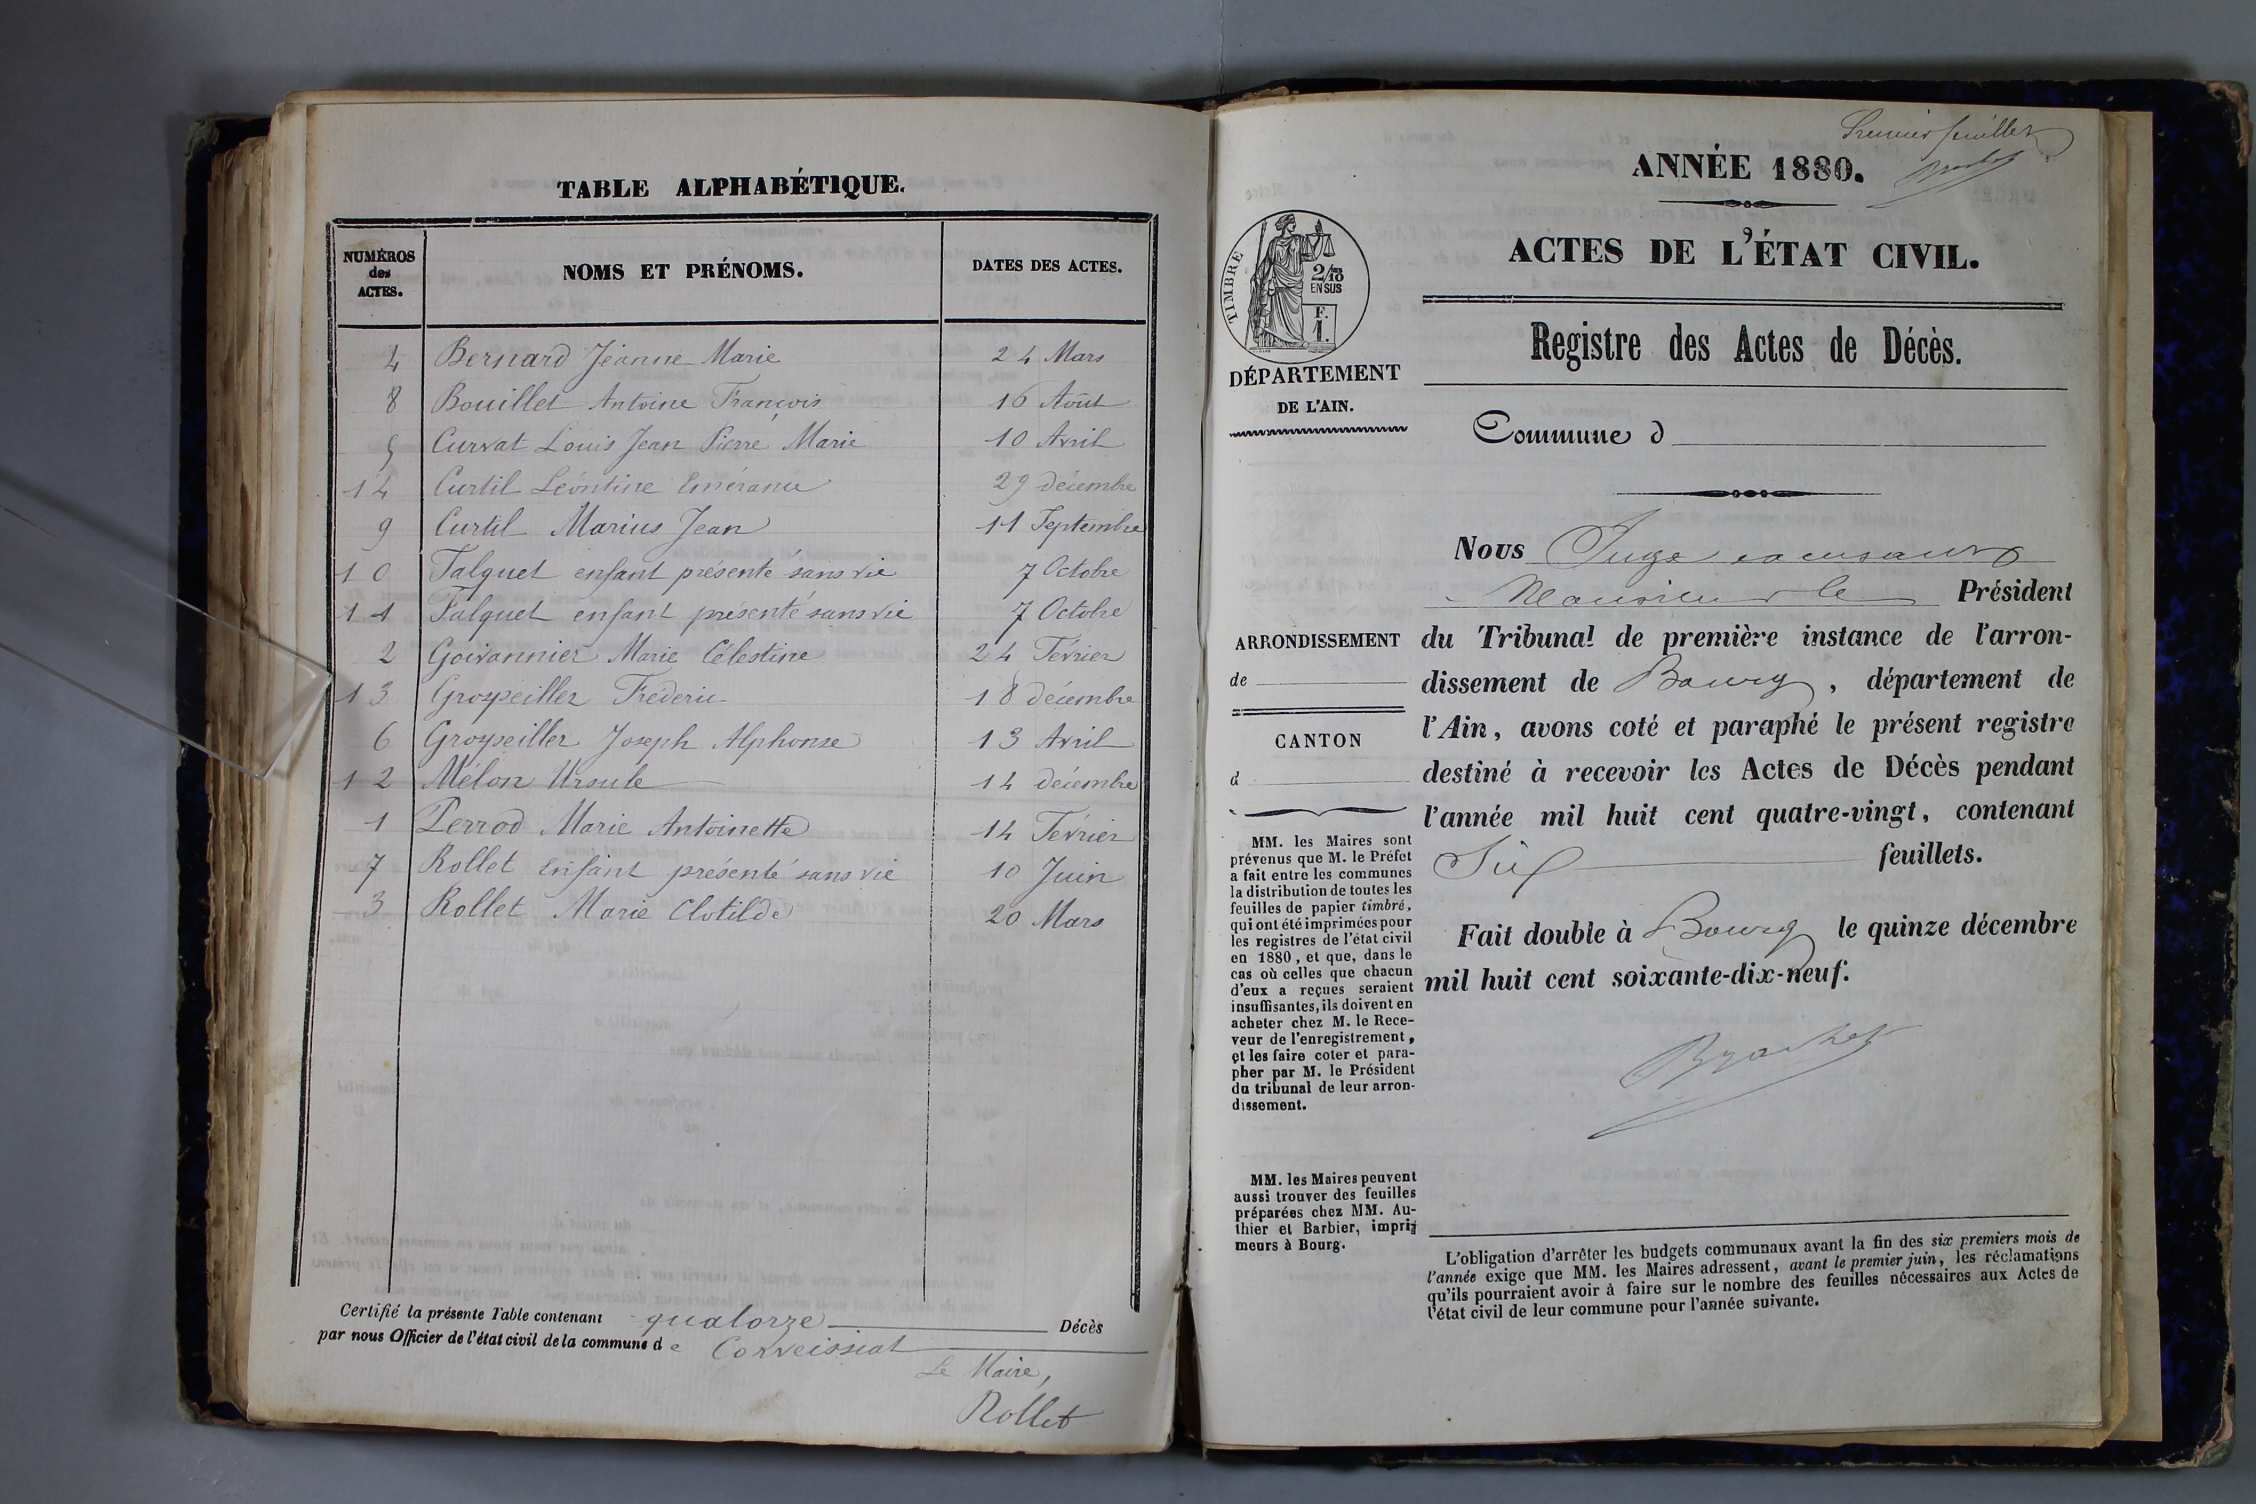 TABLE ALPHABÉTIQUE.
NUMÉROS des ACTES.
NOMS ET PRÉNOMS.
DATES DES ACTES.
4 Bernard Jeanne Marie 24 Mars
8 Bouillet Antoine François 16 Août
5 Curvat Louis Jean Pierre Marie 10 Avril
14 Curtil Léontine Emérance 29 décembre
9 Curtil Marius Jean 11 Septembre
10 Falquet enfant présenté sans vie 7 Octobre
11 Falquet enfant présenté sans vie 7 Octobre
2 Goivannier Marie Célestine 24 Février
13 Grospeiller Frédéric 18 décembre
6 Grospeiller Joseph Alphonse 13 Avril
12 Mélon Ursule 14 décembre
1 Perrod Marie Antoinette 14 Février
7 Rollet enfant présenté sans vie 10 Juin
3 Rollet Marie Clotilde 20 Mars
Certifié la présente Table contenant quatorze Décès
par nous Officier de l'état civil de la commune de Corveissiat
Le Maire,
Rollet
Premier feuillet
ANNÉE 1880.
ACTES DE L'ÉTAT CIVIL.
TIMBRE
2/10
EN SUS
F.
1.
DÉPARTEMENT
DE L'AIN.
Registre des Actes de Décès.
Commune d
Nous Juge
Monsieur le Président
du Tribunal de première instance de l'arron-
dissement de Bourg, département de
l'Ain, avons coté et paraphé le présent registre
destiné à recevoir les Actes de Décès pendant
l'année mil huit cent quatre-vingt, contenant
Six feuillets.
Fait double à Bourg le quinze décembre
mil huit cent soixante-dix-neuf.
ARRONDISSEMENT
de
CANTON
d
MM. les Maires sont
prévenus que M. le Préfet
a fait entre les communes
la distribution de toutes les
feuilles de papier timbré,
qui ont été imprimées pour
les registres de l'état civil
en 1880, et que, dans le
cas où celles que chacun
d'eux a reçues seraient
insuffisantes, ils doivent en
acheter chez M. le Rece-
veur de l'enregistrement,
et les faire coter et para-
pher par M. le Président
du tribunal de leur arron-
dissement.
MM. les Maires peuvent
aussi trouver des feuilles
préparées chez MM. Au-
thier et Barbier, impri-
meurs à Bourg.
L'obligation d'arrêter les budgets communaux avant la fin des six premiers mois de
l'année exige que MM. les Maires adressent, avant le premier juin, les réclamations
qu'ils pourraient avoir à faire sur le nombre des feuilles nécessaires aux Actes de
l'état civil de leur commune pour l'année suivante.